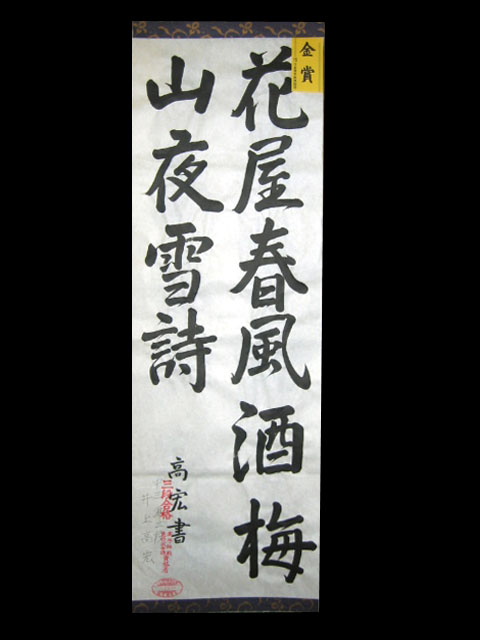 金賞
花屋春風酒梅
山夜雪詩
高宏書
三段合格
井上高宏